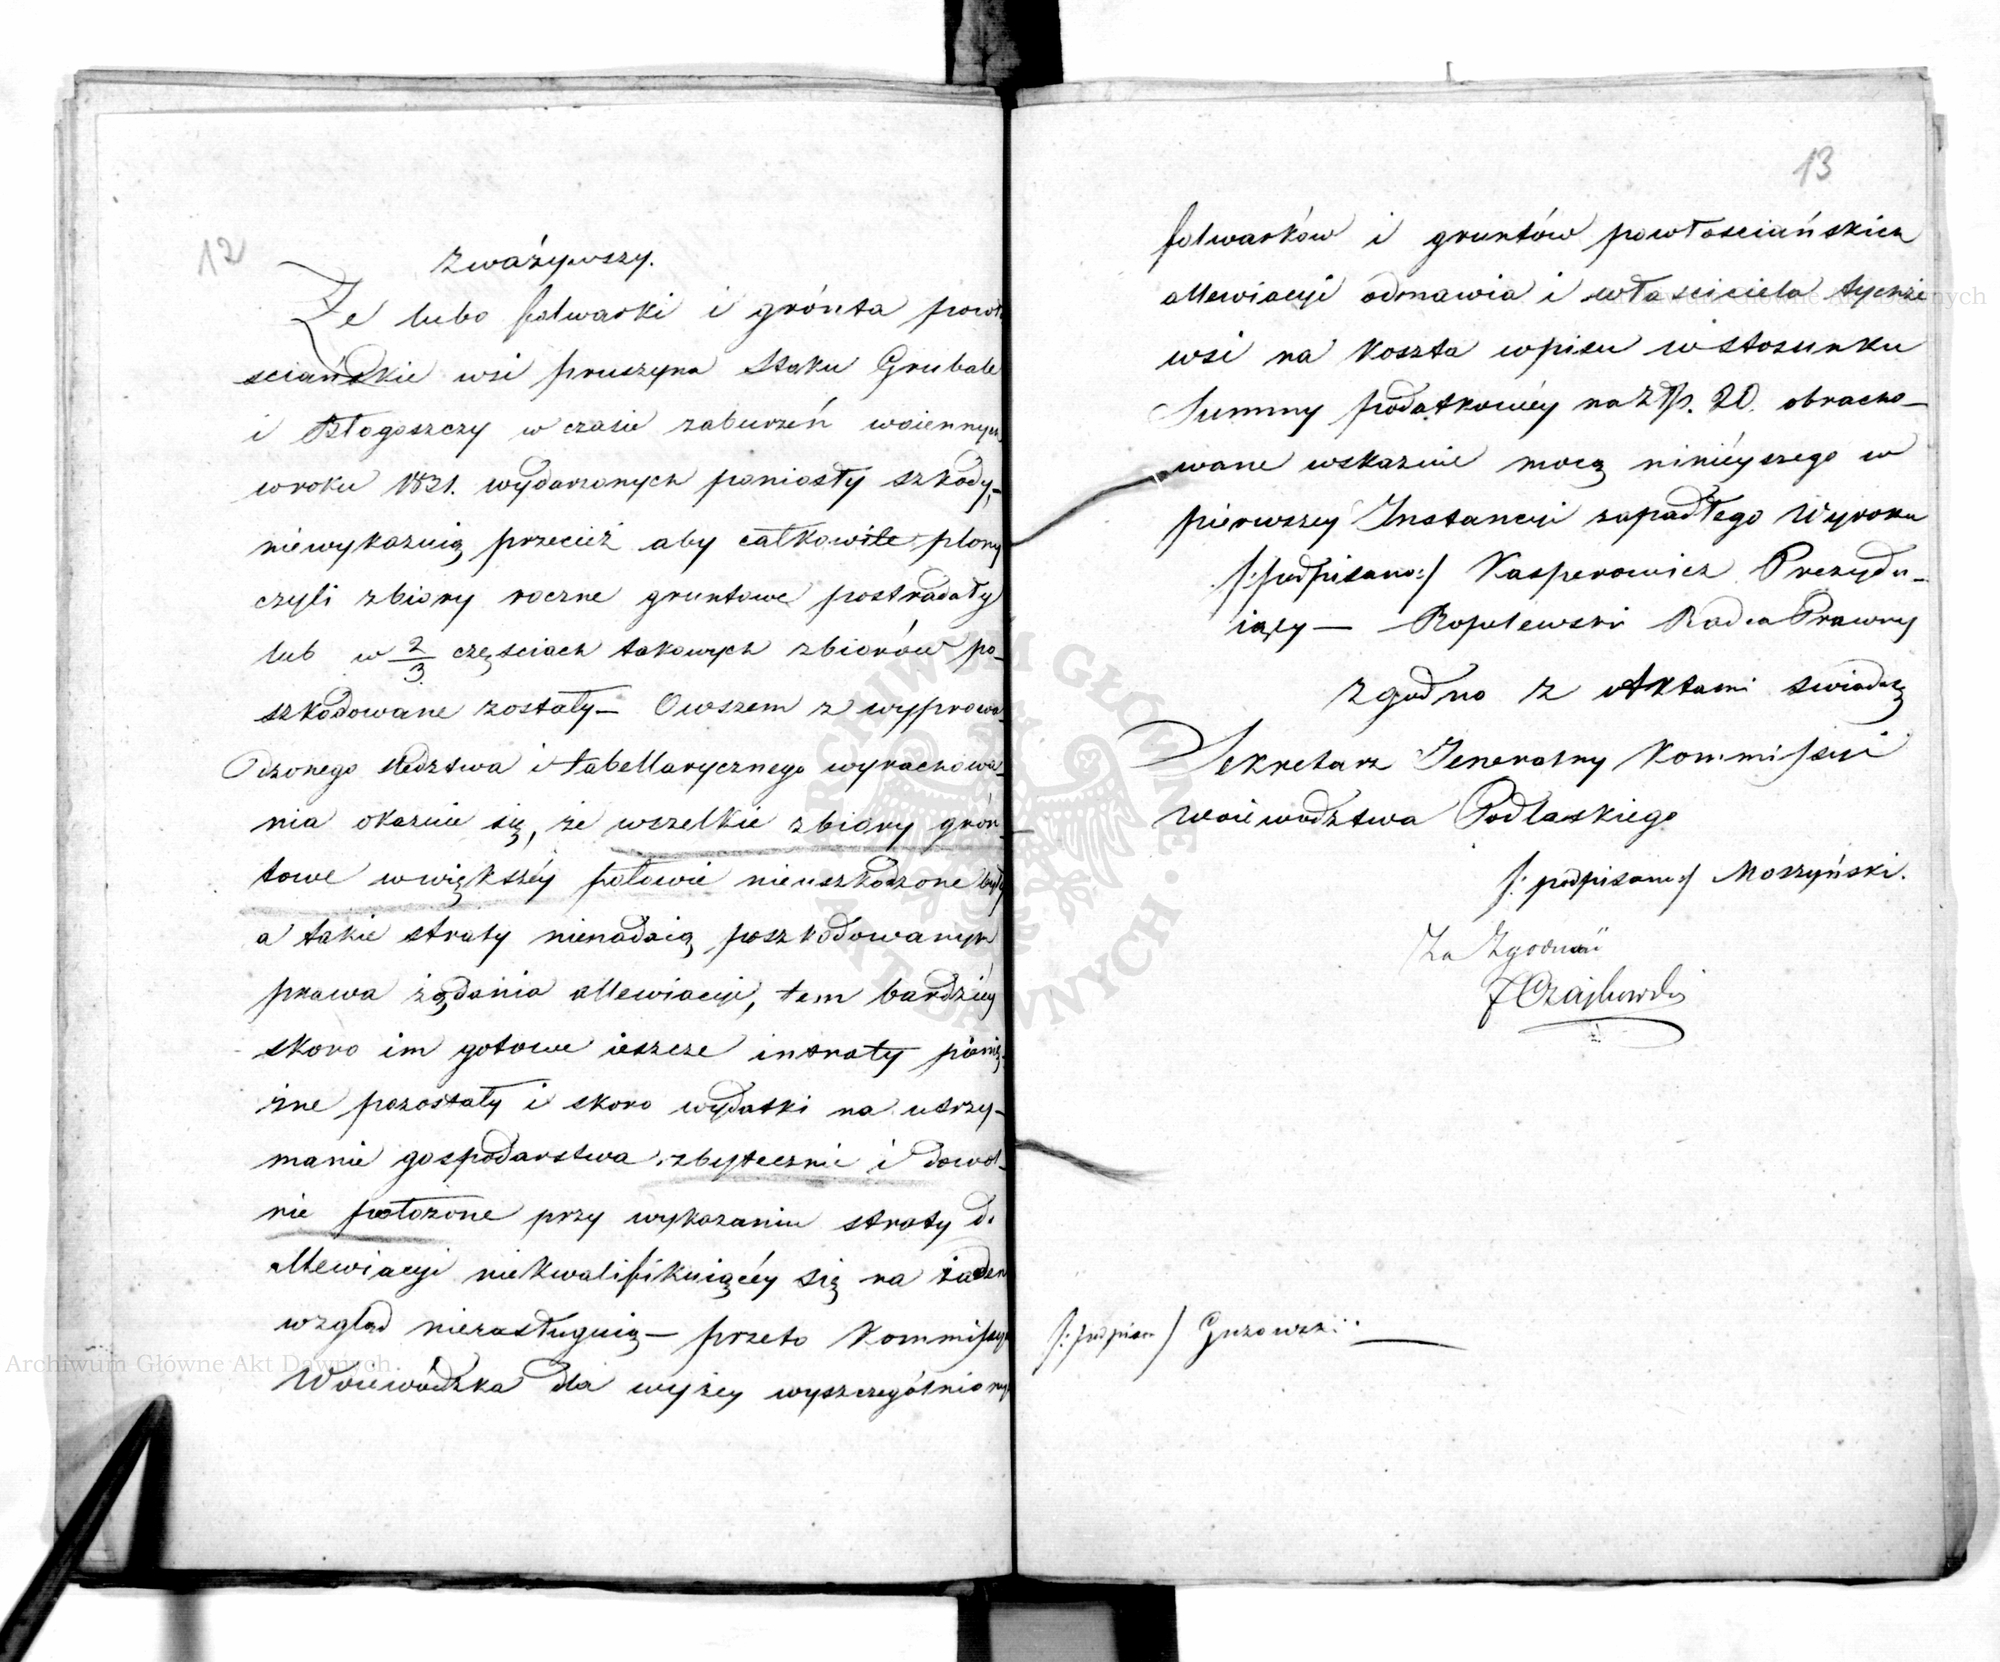 12
Zważywszy.
Że lubo folwarki i grónta powło
sciańskie wsi pruszyna Stoku Grubale
i Błogoszczy w czasie zaburzeń woiennych
w roku 1831. wydarzonych poniosły szkody,
niewykazuią przecież aby całkowite plony
czyli zbiory roczne gruntowe postradały
lub w 2/3 częsciach takowych zbiorów po-
szkodowane zostały — Owszem z wyprowa-
dzonego sledztwa i tabellarycznego wyrachowa-
nia okazuie się, że wszelkie zbiory grón-
towe w większéy połowie nieuszkodzone były
a takie straty nienadaią poszkodowanym
prawa żądania allewiacyi, tem bardziéy
skoro im gotowe ieszcze intraty pienię-
żne pozostały i skoro wydatki na utrzy-
manie gospodarstwa zbytecznie i dowol-
nie położone przy wykazaniu straty do
allewiacyi niekwalifikuiącéy się na żaden
wzgląd niezasługuią — przeto Kommissya
Woiewódzka dla wyżey wyszczególnionych
13
folwarków i gruntów powłosciańskich
allewiacyi odmawia i własciciela tychże
wsi na koszta wpisu w stosunku
Summy podatkowéy na Złp. 20. obracho-
wane wskazuie mocą ninieyszego w
pierwszey Instancyi zapadłego Wyroku
/:podpisano:/ Kasperowicz Prezydu-
iący — Ropelewski Radca Prawny
zgodno z Aktami swiadczę
Sekretarz Jeneralny Kommissyi
Woiewództwa Podlaskiego
/:podpisano:/ Moszyński.
Za Zgodność
/:podpisano/ Guzowski
Archiwum Główne Akt Dawnych
Archiwum Główne Akt Dawnych
ARCHIWUM GŁÓWNE AKT DAWNYCH